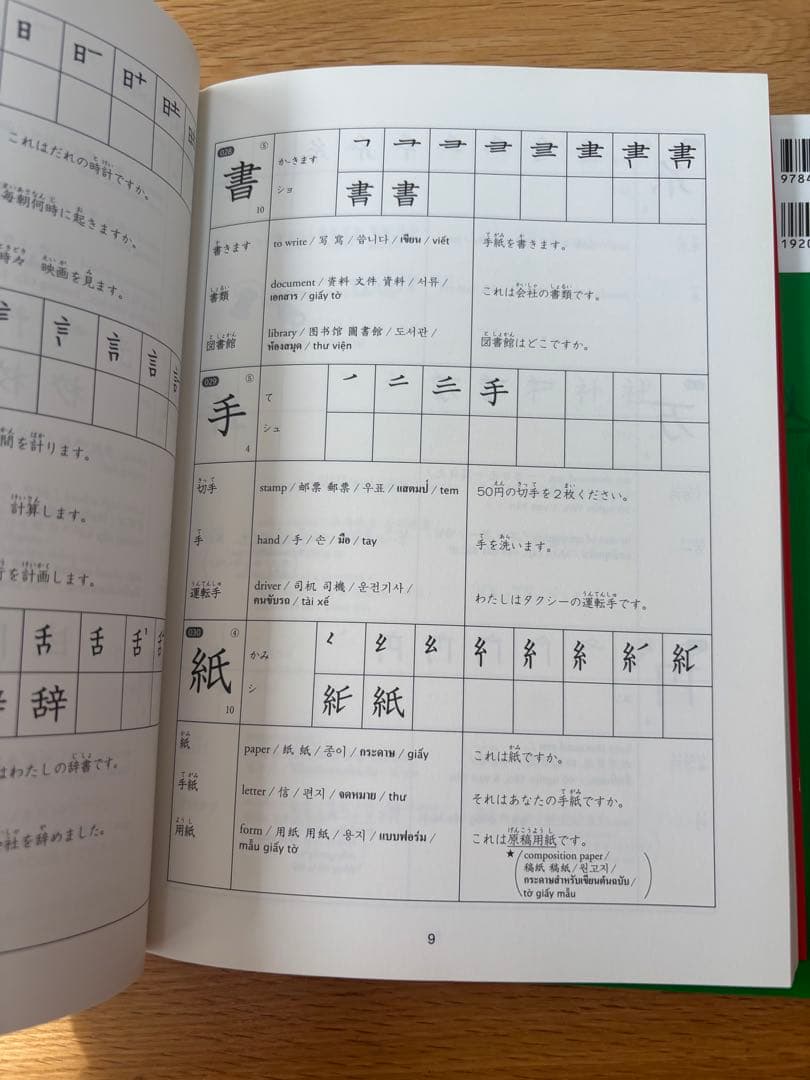 日 日一 日十 日土
これはだれの時計ですか。
毎朝何時に起きますか。
時々 映画を見ます。
言 言 言
間を計ります。
計算します。
を計画します。
舌 舌
辞
はわたしの辞書です。
社を辞めました。
028 ⑤
書 10
かきます
ショ
書 書
書きます to write / 写 寫 / 씁니다 / เขียน / viết 手紙を書きます。
書類 document / 资料 文件 資料 / 서류 / これは会社の書類です。
เอกสาร / giấy tờ
図書館 library / 图书馆 圖書館 / 도서관 / 図書館はどこですか。
ห้องสมุด / thư viện
029 ⑤
手 4
て
シュ
一 二 三 手
切手 stamp / 邮票 郵票 / 우표 / แสตมป์ / tem 50円の切手を2枚ください。
手 hand / 手 / 손 / มือ / tay 手を洗います。
運転手 driver / 司机 司機 / 운전기사 / わたしはタクシーの運転手です。
คนขับรถ / tài xế
030 ④
紙 10
かみ
シ
紙
紙 paper / 纸 紙 / 종이 / กระดาษ / giấy これは紙ですか。
手紙 letter / 信 / 편지 / จดหมาย / thư それはあなたの手紙ですか。
用紙 form / 用纸 用紙 / 용지 / แบบฟอร์ม / これは原稿用紙です。
mẫu giấy tờ
★ ( composition paper /
稿纸 稿紙 / 원고지 /
กระดาษสำหรับเขียนต้นฉบับ /
tờ giấy mẫu )
9
9784
1920